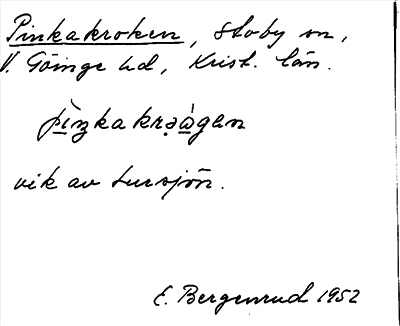 Pinkakroken, Stoby sn,
V. Göinge hd, Krist. län.
pìnkakrɘàgan
vik av Lursjön.
E. Bergenrud 1952